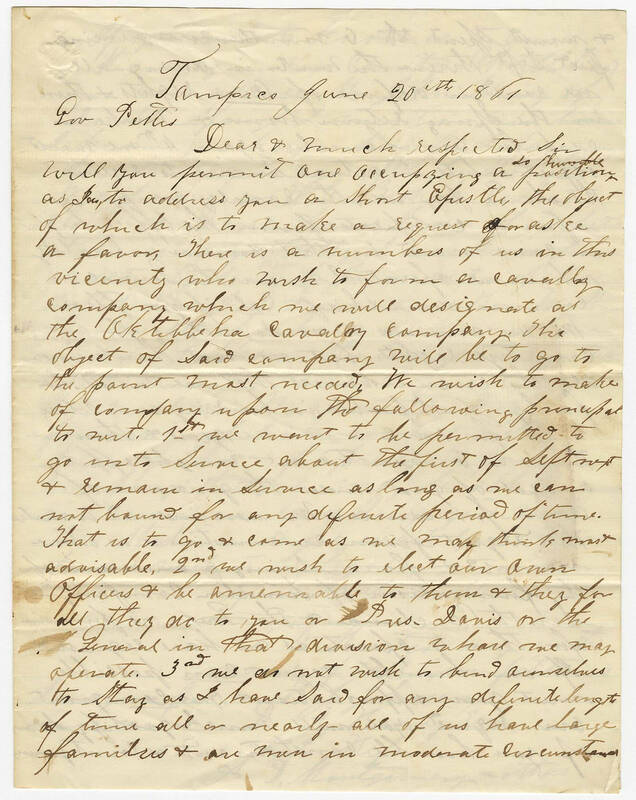 Tampico June 20th 1861
Gov Pettis
Dear & much respected Sir
will you permit one occupying a so humble position
as I am, to address you a short Epistle, the object
of which is to make a request or aske
a favor, There is a numbers of us in this
vicinity who wish to form a cavalry
company which we will designate as
the Oktibbeha Cavalry company, The
object of said company will be to go to
the point most needed, We wish to make
of company upon the following principal
to wit. 1st we want to be permitted to
go into service about the first of Sept next
& remain in service as long as we can
not bound for any definite period of time.
That is to go & come as we may think most
advisable, 2nd we wish to elect our own
Officers & be amenable to them & they for
all they do to you or Pres. Davis or the
General in that division where we may
operate. 3rd we do not wish to bind ourselves
to stay as I have said for any definite length
of time all or nearly all of us have large
families & are men in moderate circumstances